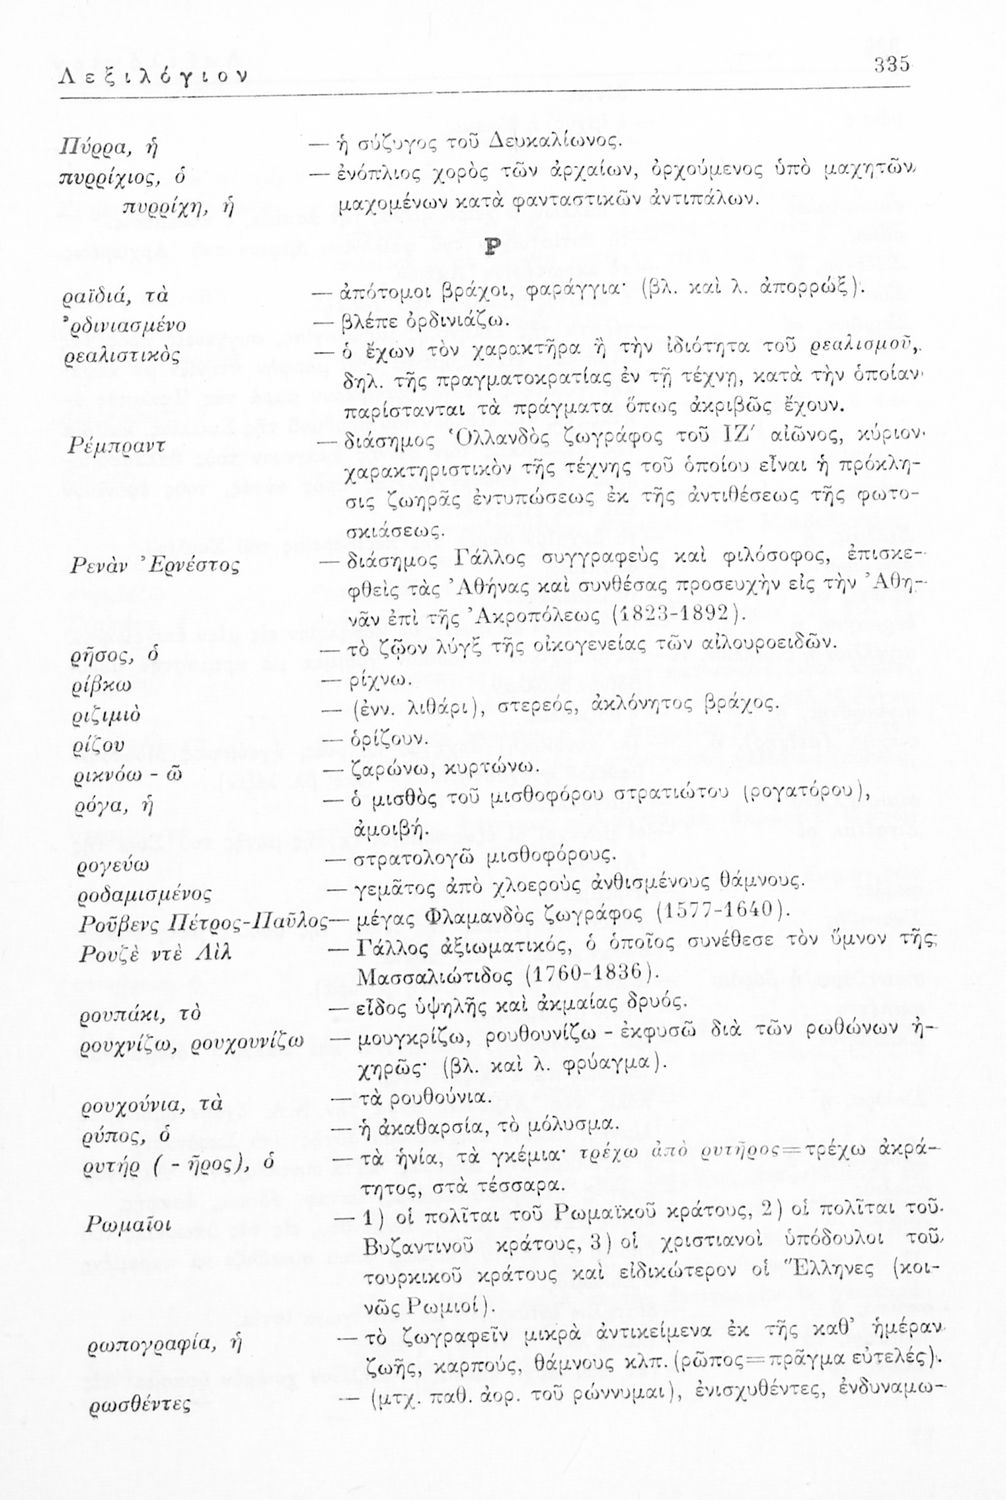 Λεξιλόγιον 335
Πύρρα, ἡ — ἡ σύζυγος τοῦ Δευκαλίωνος.
πυρρίχιος, ὁ — ἐνόπλιος χορὸς τῶν ἀρχαίων, ὀρχούμενος ὑπὸ μαχητῶν,
πυρρίχη, ἡ μαχομένων κατὰ φανταστικῶν ἀντιπάλων.
Ρ
ραϊδιά, τὰ — ἀπότομοι βράχοι, φαράγγια· (βλ. καὶ λ. ἀπορρώξ).
᾿ρδινιασμένο — βλέπε ὀρδινιάζω.
ρεαλιστικὸς — ὁ ἔχων τὸν χαρακτῆρα ἢ τὴν ἰδιότητα τοῦ ρεαλισμοῦ,
δηλ. τῆς πραγματοκρατίας ἐν τῇ τέχνῃ, κατὰ τὴν ὁποίαν
παρίστανται τὰ πράγματα ὅπως ἀκριβῶς ἔχουν.
Ρέμπραντ — διάσημος Ὁλλανδὸς ζωγράφος τοῦ ΙΖ′ αἰῶνος, κύριον
χαρακτηριστικὸν τῆς τέχνης τοῦ ὁποίου εἶναι ἡ πρόκλη-
σις ζωηρᾶς ἐντυπώσεως ἐκ τῆς ἀντιθέσεως τῆς φωτο-
σκιάσεως.
Ρενὰν Ἐρνέστος — διάσημος Γάλλος συγγραφεὺς καὶ φιλόσοφος, ἐπισκε-
φθεὶς τὰς Ἀθήνας καὶ συνθέσας προσευχὴν εἰς τὴν Ἀθη-
νᾶν ἐπὶ τῆς Ἀκροπόλεως (1823-1892).
ρῆσος, ὁ — τὸ ζῷον λύγξ τῆς οἰκογενείας τῶν αἰλουροειδῶν.
ρίβκω — ρίχνω.
ριζιμιὸ — (ἐνν. λιθάρι), στερεός, ἀκλόνητος βράχος.
ρίζου — ὁρίζουν.
ρικνόω - ῶ — ζαρώνω, κυρτώνω.
ρόγα, ἡ — ὁ μισθὸς τοῦ μισθοφόρου στρατιώτου (ρογατόρου),
ἀμοιβή.
ρογεύω — στρατολογῶ μισθοφόρους.
ροδαμισμένος — γεμᾶτος ἀπὸ χλοεροὺς ἀνθισμένους θάμνους.
Ροῦβενς Πέτρος-Παῦλος— μέγας Φλαμανδὸς ζωγράφος (1577-1640).
Ρουζὲ ντὲ Λὶλ — Γάλλος ἀξιωματικός, ὁ ὁποῖος συνέθεσε τὸν ὕμνον τῆς
Μασσαλιώτιδος (1760-1836).
ρουπάκι, τὸ — εἶδος ὑψηλῆς καὶ ἀκμαίας δρυός.
ρουχνίζω, ρουχουνίζω — μουγκρίζω, ρουθουνίζω - ἐκφυσῶ διὰ τῶν ρωθώνων ἠ-
χηρῶς· (βλ. καὶ λ. φρύαγμα).
ρουχούνια, τὰ — τὰ ρουθούνια.
ρύπος, ὁ — ἡ ἀκαθαρσία, τὸ μόλυσμα.
ρυτήρ ( - ῆρος), ὁ — τὰ ἡνία, τὰ γκέμια· τρέχω ἀπὸ ρυτῆρος=τρέχω ἀκρά-
τητος, στὰ τέσσαρα.
Ρωμαῖοι — 1) οἱ πολῖται τοῦ Ρωμαϊκοῦ κράτους, 2) οἱ πολῖται τοῦ
Βυζαντινοῦ κράτους, 3) οἱ χριστιανοὶ ὑπόδουλοι τοῦ
τουρκικοῦ κράτους καὶ εἰδικώτερον οἱ Ἕλληνες (κοι-
νῶς Ρωμιοί).
ρωπογραφία, ἡ — τὸ ζωγραφεῖν μικρὰ ἀντικείμενα ἐκ τῆς καθ᾿ ἡμέραν
ζωῆς, καρπούς, θάμνους κλπ. (ρῶπος=πρᾶγμα εὐτελές).
ρωσθέντες — (μτχ. παθ. ἀορ. τοῦ ρώννυμαι), ἐνισχυθέντες, ἐνδυναμω-